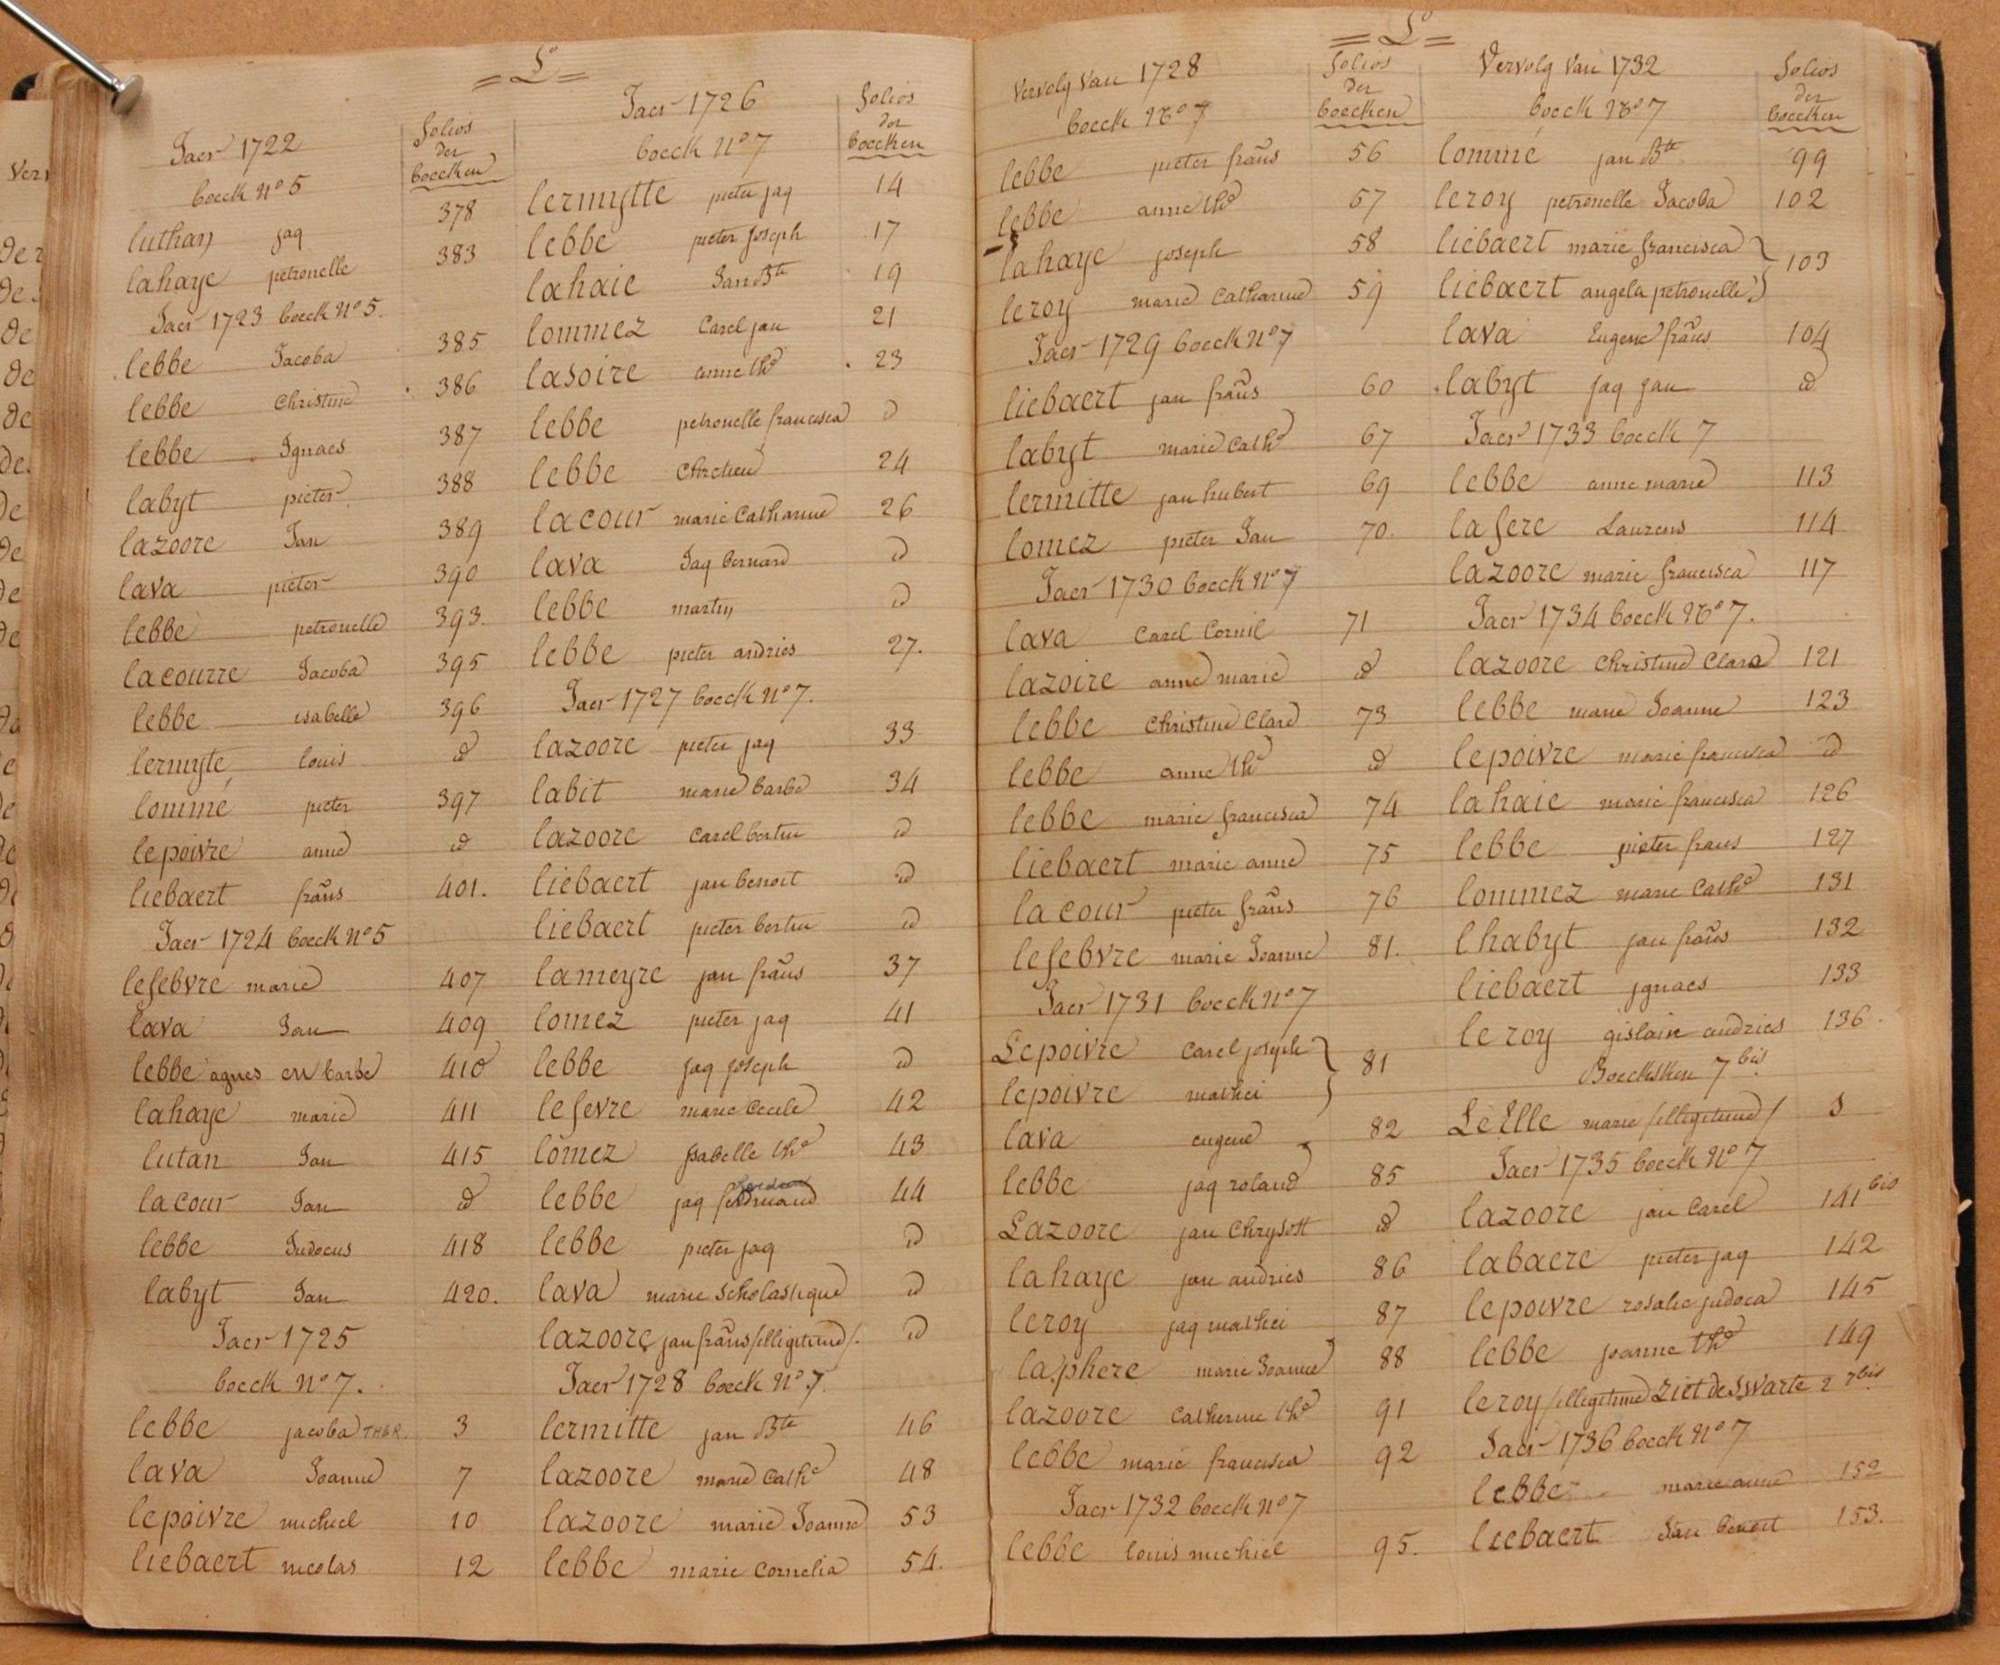 = L° =
Jaer 1722
boeck N° 5
folios
der
boecken
luthan jaq 378
lahaye petronelle 383
Jaer 1723 boeck N° 5.
lebbe Jacoba 385
lebbe Christine 386
lebbe Ignaes 387
labyt pieter 388
lazoore Jan 389
lava pieter 390
lebbe petronelle 393.
lacourre Jacoba 395
lebbe isabelle 396
lermyte louis id
lommé pieter 397
lepoivre anne id
liebaert frans 401.
Jaer 1724 boeck N° 5
lefebvre marie 407
lava Jan 409
lebbe agnes en barbe 410
lahaye marie 411
lutan Jan 415
lacour Jan id
lebbe Judocus 418
labyt Jan 420.
Jaer 1725
boeck N° 7.
lebbe jacoba THER. 3
lava Joanne 7
lepoivre michiel 10
liebaert nicolas 12
Jaer 1726
boeck N° 7
folios
der
boecken
lermytte pieter jaq 14
lebbe pieter Joseph 17
lahaie Jan Bte 19
lommez Carel jan 21
lasoire anne the 23
lebbe petronelle francisca id
lebbe Chretien 24
lacour marie Catharine 26
lava Jaq bernard id
lebbe martin id
lebbe pieter andries 27.
Jaer 1727 boeck N° 7.
lazoore pieter jaq 33
labit marie barbe 34
lazoore carel bertin id
liebaert jan benoit id
liebaert pieter bertin id
lameyre jan frans 37
lomez pieter jaq 41
lebbe jaq joseph id
lefevre marie Cecile 42
lomez Isabelle the 43
lebbe jaq ferdinand 44
lebbe pieter jaq id
lava marie scholastique id
lazoore jan frans /illigitime/. id
Jaer 1728 boeck N° 7.
lermitte jan Bte 46
lazoore marie Cathe 48
lazoore marie Joanne 53
lebbe marie Cornelia 54.
= L° =
Vervolg van 1728
boeck N° 7
folios
der
boecken
lebbe pieter frans 56
lebbe anne the 57
lahaye joseph 58
leroy marie Catharine 59
Jaer 1729 boeck N° 7
liebaert jan frans 60
labyt marie Cathe 67
lermitte jan hubert 69
lomez pieter Jan 70.
Jaer 1730 boeck N° 7
lava Carel Cornil 71
lazoire anne marie id
lebbe Christine Clare 73
lebbe anne the id
lebbe marie francisca 74
liebaert marie anne 75
lacour pieter frans 76
lefebvre marie Joanne 81.
Jaer 1731 boeck N° 7
Lepoivre Carel joseph }
lepoivre mathei } 81
lava eugene 82
lebbe jaq roland 85
Lazoore jan Chrysost id
lahaye jan andries 86
leroy jaq mathei 87
laphere marie Joanne 88
lazoore Catherine the 91
lebbe marie francisca 92
Jaer 1732 boeck N° 7
lebbe louis michiel 95.
Vervolg van 1732
boeck N° 7
folios
der
boecken
lommé jan Bte 99
leroy petronelle Jacoba 102
liebaert marie francisca }
liebaert angela petronelle } 103
lava Eugene frans 104
labyt jaq jan id
Jaer 1733 boeck 7
lebbe anne marie 113
lafere Laurens 114
lazoore marie francisca 117
Jaer 1734 boeck N° 7.
lazoore Christine Clara 121
lebbe marie Joanne 123
lepoivre marie francisca id
lahaie marie francisca 126
lebbe pieter frans 127
lommez marie Cathe 131
lhabyt jan frans 132
liebaert ignaes 133
leroy gislain andries 136.
Boecksken 7 bis
LeElle marie /illigitime/
Jaer 1735 boeck N° 7
lazoore jan Carel 141 bis
labaere pieter jaq 142
lepoivre rosalie judoca 145
lebbe joanne the 149
leroy /illigitime ziet de Swarte 2 7 bis
Jaer 1736 boeck N° 7
lebbe marie anne 152
liebaert Jan benoit 153.